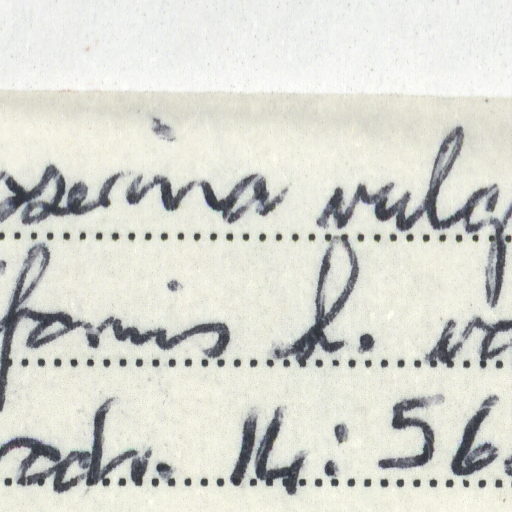 oserina vulg
iformis L. va
rodr. 14: 56